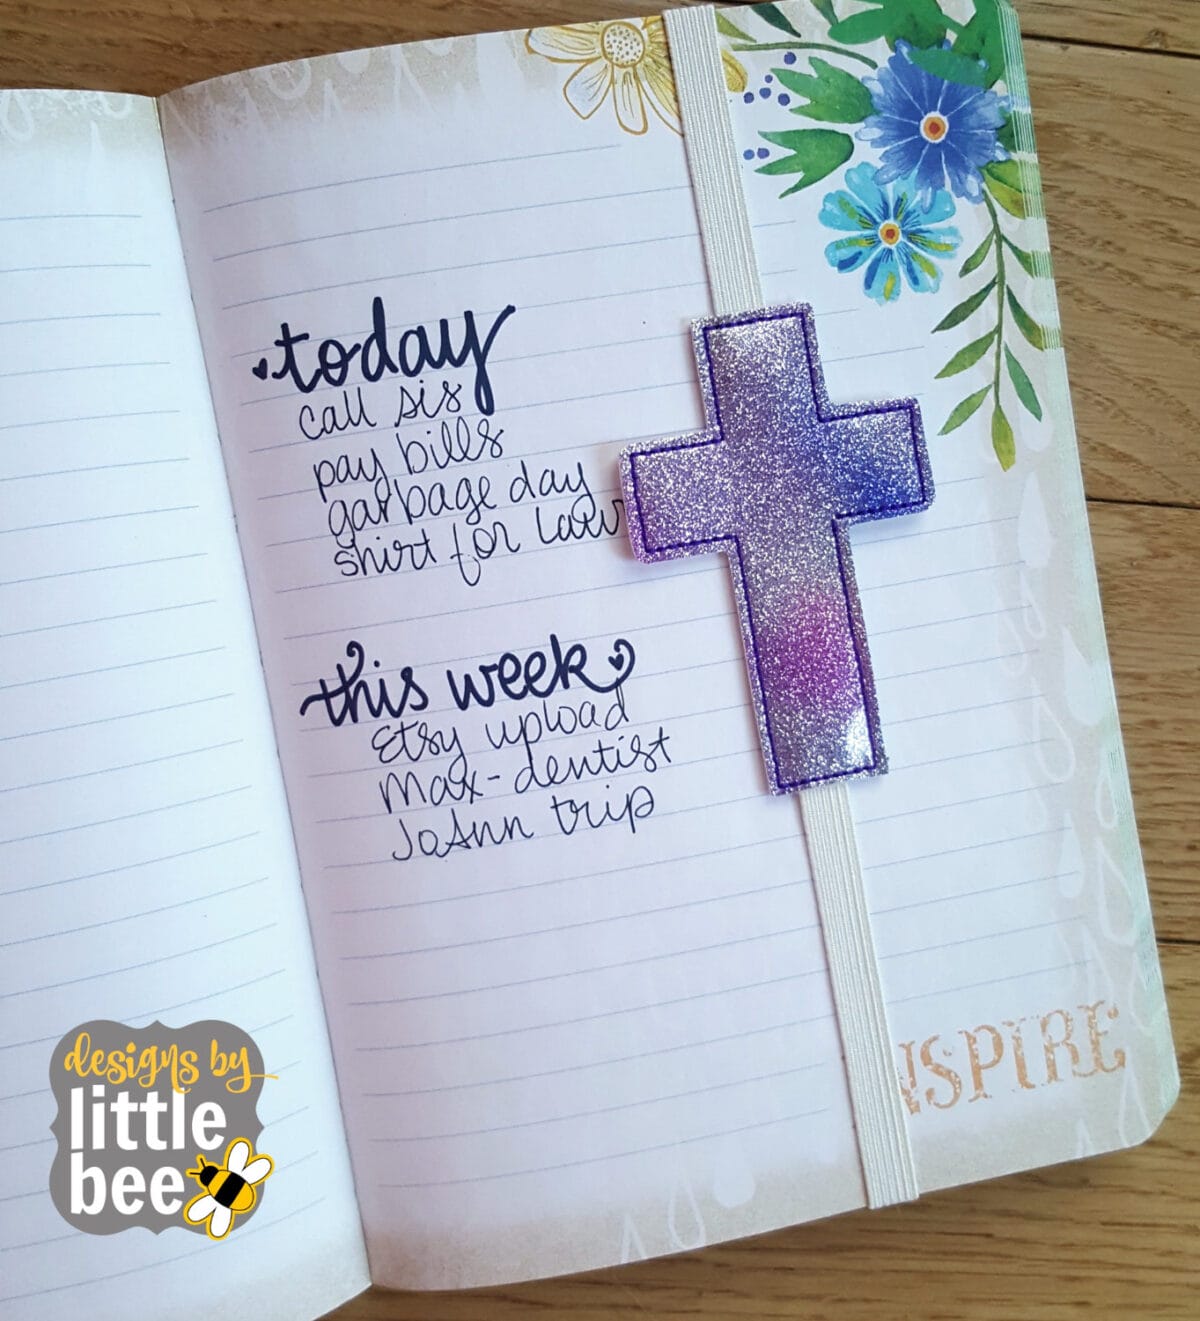 today
call sis
pay bills
garbage day
shirt for
this week
Etsy upload
Max-dentist
JoAnn trip
NSPIRE
designs by
little
bee